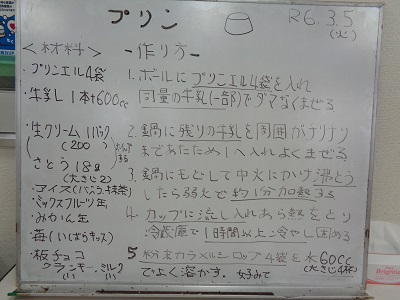 プリン
R6.3.5
(火)
<材料>
・プリンエル4袋
・牛乳L1本+600cc
・生クリーム1パック
(200)
さとう18g
(大さじ2)
・アイス(バニラ・抹茶)
・ミックスフルーツ缶
・みかん缶
・苺(いばらキッス)
・板チョコ
クランキー・ミルク
-作り方-
1.ボールにプリンエル4袋を入れ
同量の牛乳(一部)でダマなくまぜる
2.鍋に残りの牛乳を周囲がチリチリ
まであたため1へ入れよくまぜる
3.鍋にもどして中火にかけ沸とう
したら弱火で約1分加熱する
4.カップに流し入れあら熱をとり
冷蔵庫で1時間以上冷やし固める
5粉末カラメルシロップ4袋を水60cc
(大さじ4杯)
でよく溶かす。好みで